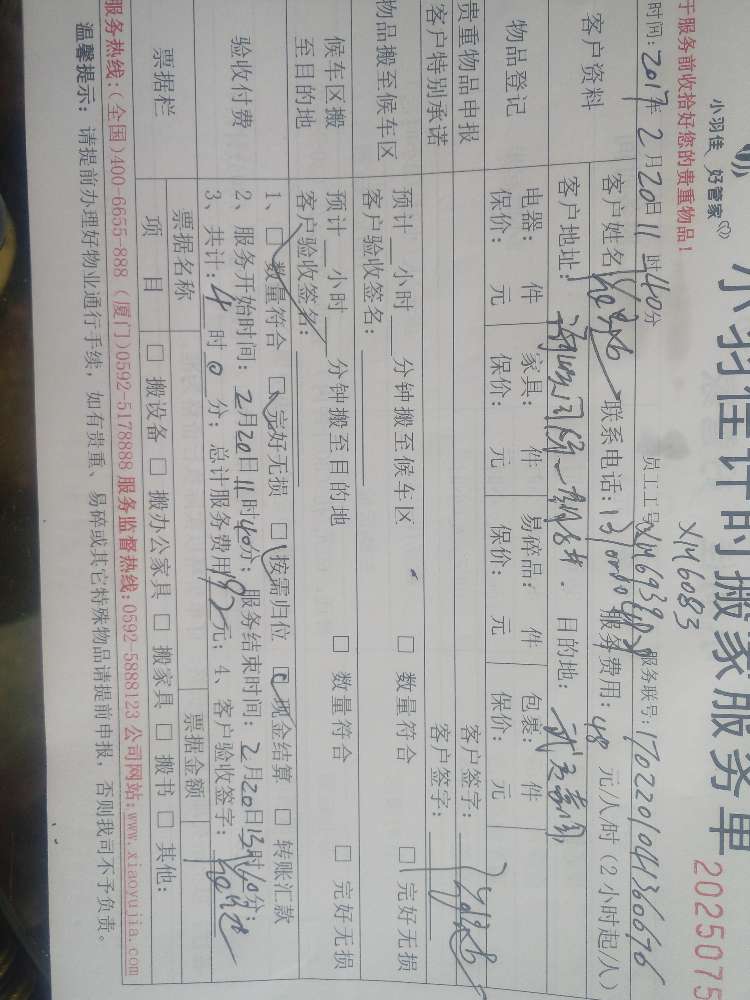 小羽佳 好管家
小羽佳计时搬家服务单
2025075
于服务前收拾好您的贵重物品!
XM6083
时间:2017年2月20日11时40分 员工工号:XM6939 服务联号:1702201041360676
客户资料
客户姓名 联系电话: 服务费用:48元/人/时(2小时起/人)
客户地址: 目的地:
物品登记
电器: 件 家具: 件 易碎品: 件 包裹: 件
保价: 元 保价: 元 保价: 元 保价: 元
贵重物品申报 客户签字:
客户特别承诺 客户签字:
物品搬至候车区
预计 小时 分钟搬至候车区 □ 数量符合 □ 完好无损
客户验收签名:
候车区搬至目的地
预计 小时 分钟搬至目的地 □ 数量符合 □ 完好无损
客户验收签名:
验收付费
1、□ 数量符合 □ 完好无损 □ 按需归位 □ 现金结算 □ 转账汇款
2、服务开始时间:2月20日11时40分;服务结束时间:2月20日13时40分;
3、共计:4时0分;总计服务费用192元;4、客户验收签字:
票据栏
票据名称 票据金额
项 目 □ 搬设备 □ 搬办公家具 □ 搬家具 □ 搬书 □ 其他:
服务热线:(全国)400-6655-888 (厦门)0592-5178888 服务监督热线:0592-5888123 公司网站:www.xiaoyujia.com
温馨提示: 请提前办理好物业通行手续,如有贵重、易碎或其它特殊物品请提前申报,否则我司不予负责。